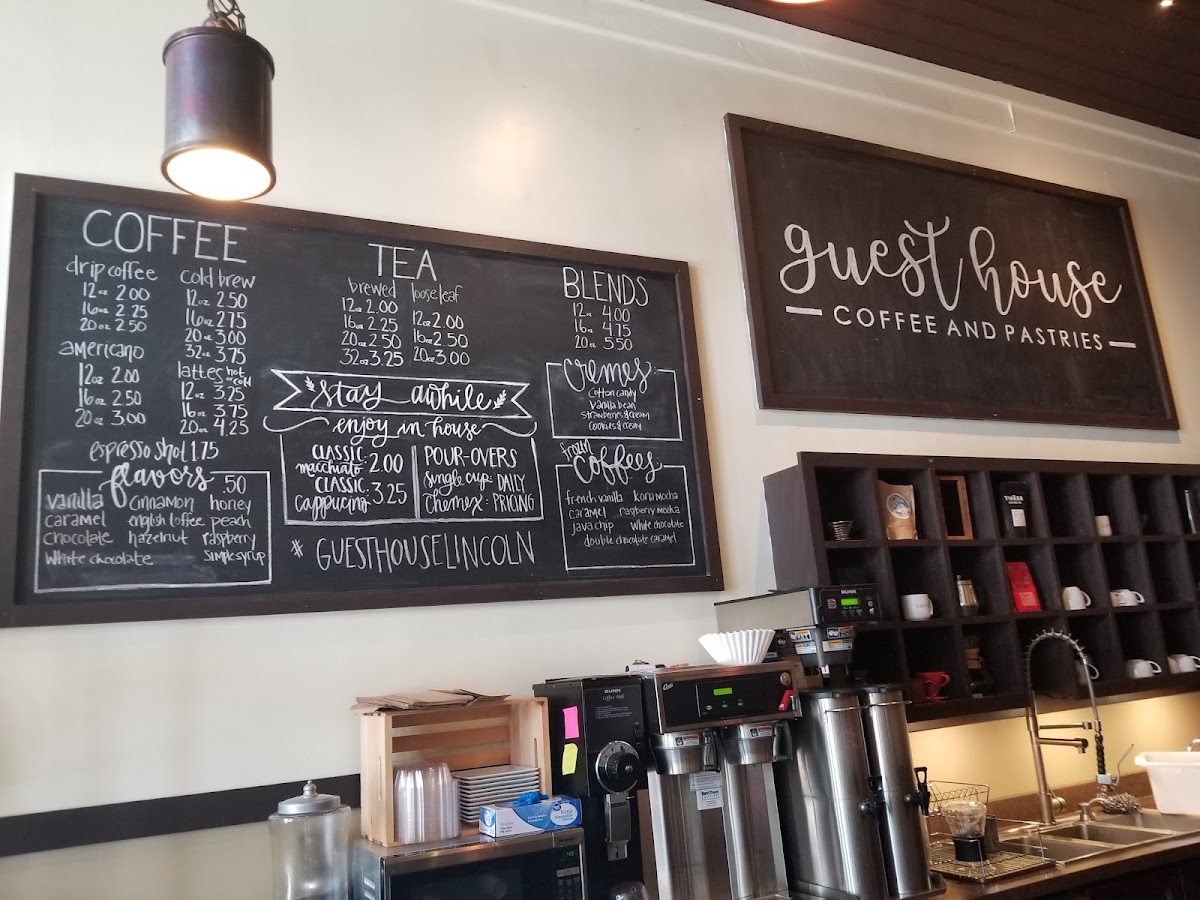 COFFEE
drip coffee
12oz 2.00
16oz 2.25
20oz 2.50
americano
12oz 2.00
16oz 2.50
20oz 3.00
cold brew
12oz 2.50
16oz 2.75
20oz 3.00
32oz 3.75
lattes hot or cold
12oz 3.25
16oz 3.75
20oz 4.25
espresso shot 1.75
flavors .50
vanilla cinnamon honey
caramel english toffee peach
chocolate hazelnut raspberry
white chocolate simple syrup
TEA
brewed
12oz 2.00
16oz 2.25
20oz 2.50
32oz 3.25
loose leaf
12oz 2.00
16oz 2.50
20oz 3.00
stay awhile
enjoy in house
CLASSIC macchiato: 2.00
CLASSIC cappucino: 3.25
POUR-OVERS
single cup: DAILY
Chemex: PRICING
# GUESTHOUSELINCOLN
BLENDS
12oz 4.00
16oz 4.75
20oz 5.50
cremes:
cotton candy
vanilla bean
strawberries & cream
cookies & cream
frozen
coffees:
french vanilla kona mocha
caramel raspberry mocha
java chip white chocolate
double chocolate caramel
guest house
COFFEE AND PASTRIES
BUNN
BUNN